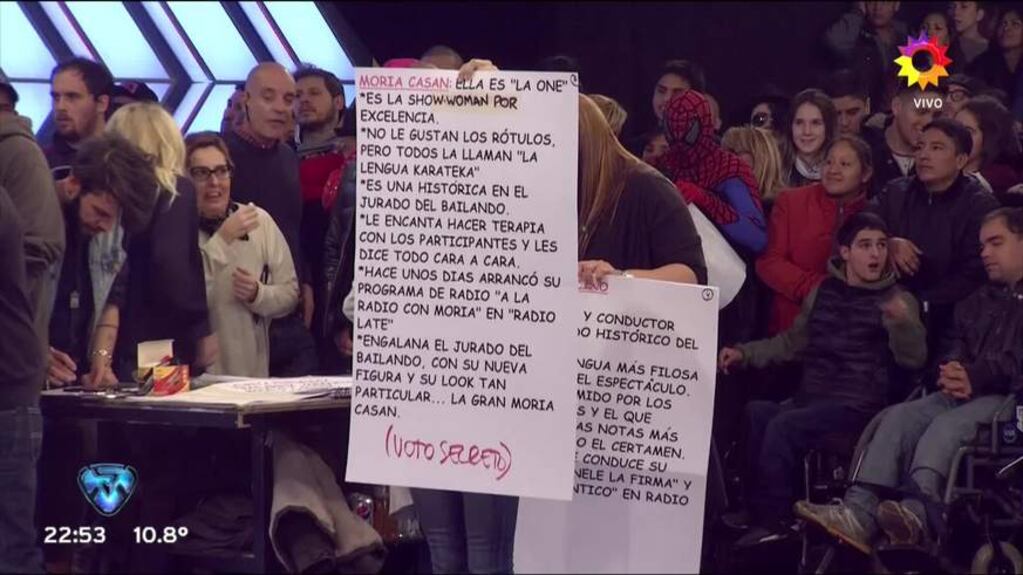 VIVO
MORIA CASAN: ELLA ES "LA ONE"
*ES LA SHOW-WOMAN POR
EXCELENCIA.
*NO LE GUSTAN LOS RÓTULOS,
PERO TODOS LA LLAMAN "LA
LENGUA KARATEKA"
*ES UNA HISTÓRICA EN EL
JURADO DEL BAILANDO.
*LE ENCANTA HACER TERAPIA
CON LOS PARTICIPANTES Y LES
DICE TODO CARA A CARA.
*HACE UNOS DIAS ARRANCÓ SU
PROGRAMA DE RADIO "A LA
RADIO CON MORIA" EN "RADIO
LATE"
*ENGALANA EL JURADO DEL
BAILANDO, CON SU NUEVA
FIGURA Y SU LOOK TAN
PARTICULAR... LA GRAN MORIA
CASAN.
(VOTO SECRETO)
Y CONDUCTOR
O HISTÓRICO DEL
NGUA MÁS FILOSA
EL ESPECTÁCULO.
MIDO POR LOS
S Y EL QUE
AS NOTAS MÁS
O EL CERTAMEN.
E CONDUCE SU
NELE LA FIRMA" Y
NTICO" EN RADIO
22:53 10.8°